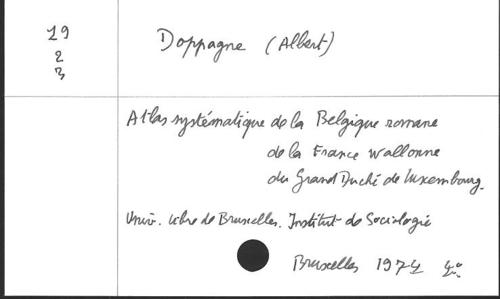 19
2
3
Doppagne (Albert)
Atlas systématique de la Belgique romane
de la France Wallonne
du Grand Duché de Luxembourg.
Univ. libre de Bruxelles. Institut de Sociologie
Bruxelles 1974 4°.